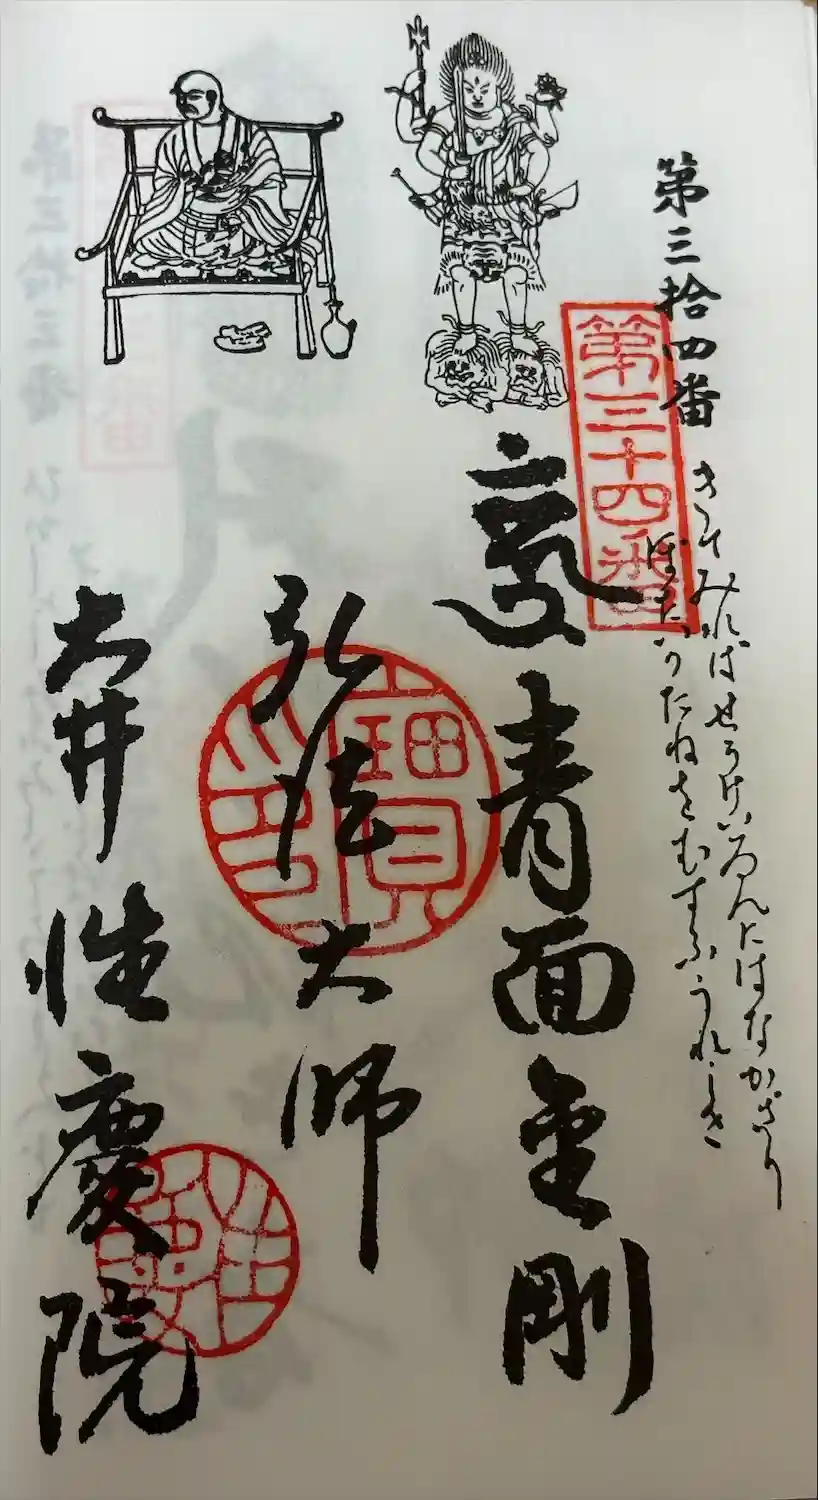 第三拾四番
第三十四番
きてみればせうけいゐんにはなかざり
たねをむすふうれしき
青面金剛
弘法大師
大井性慶院